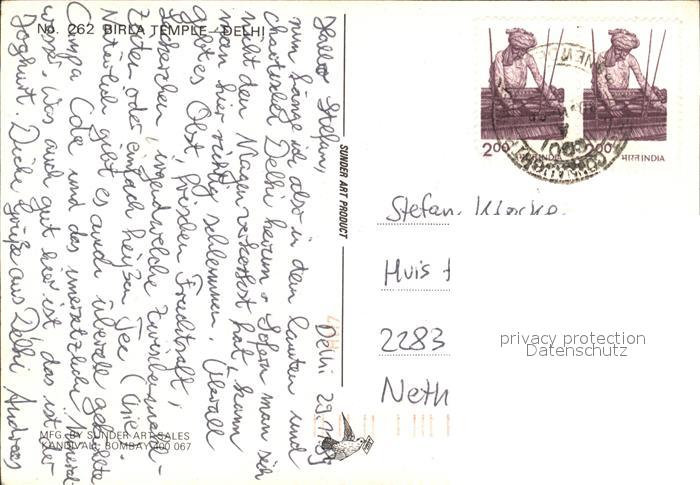 No. 262 BIRLA TEMPLE - DELHI
Delhi 29.11.89
Hallo Stefan,
nun hänge ich also in dem lauten und
chaotischen Delhi herum. Sofern man sich
nicht den Magen verkorkst hat, kann
man hier richtig schlemmen. Überall
gibt es Obst, frischen Fruchtsaft,
Leckereien, irgendwelche
oder einfach heißen Tee
Natürlich gibt es auch überall gekühlte
Campa Cola und das unersetzliche Mineral-
wasser. Was auch gut hier ist, das ist der
Joghurt. Dicke Grüße aus Delhi Andreas
MFG. BY SUNDER ART SALES
KANDIVALI, BOMBAY 400 067
SUNDER ART PRODUCT
2.00 भारत INDIA
2.00 भारत INDIA
Stefan
Huis
2283
Neth
privacy protection
Datenschutz